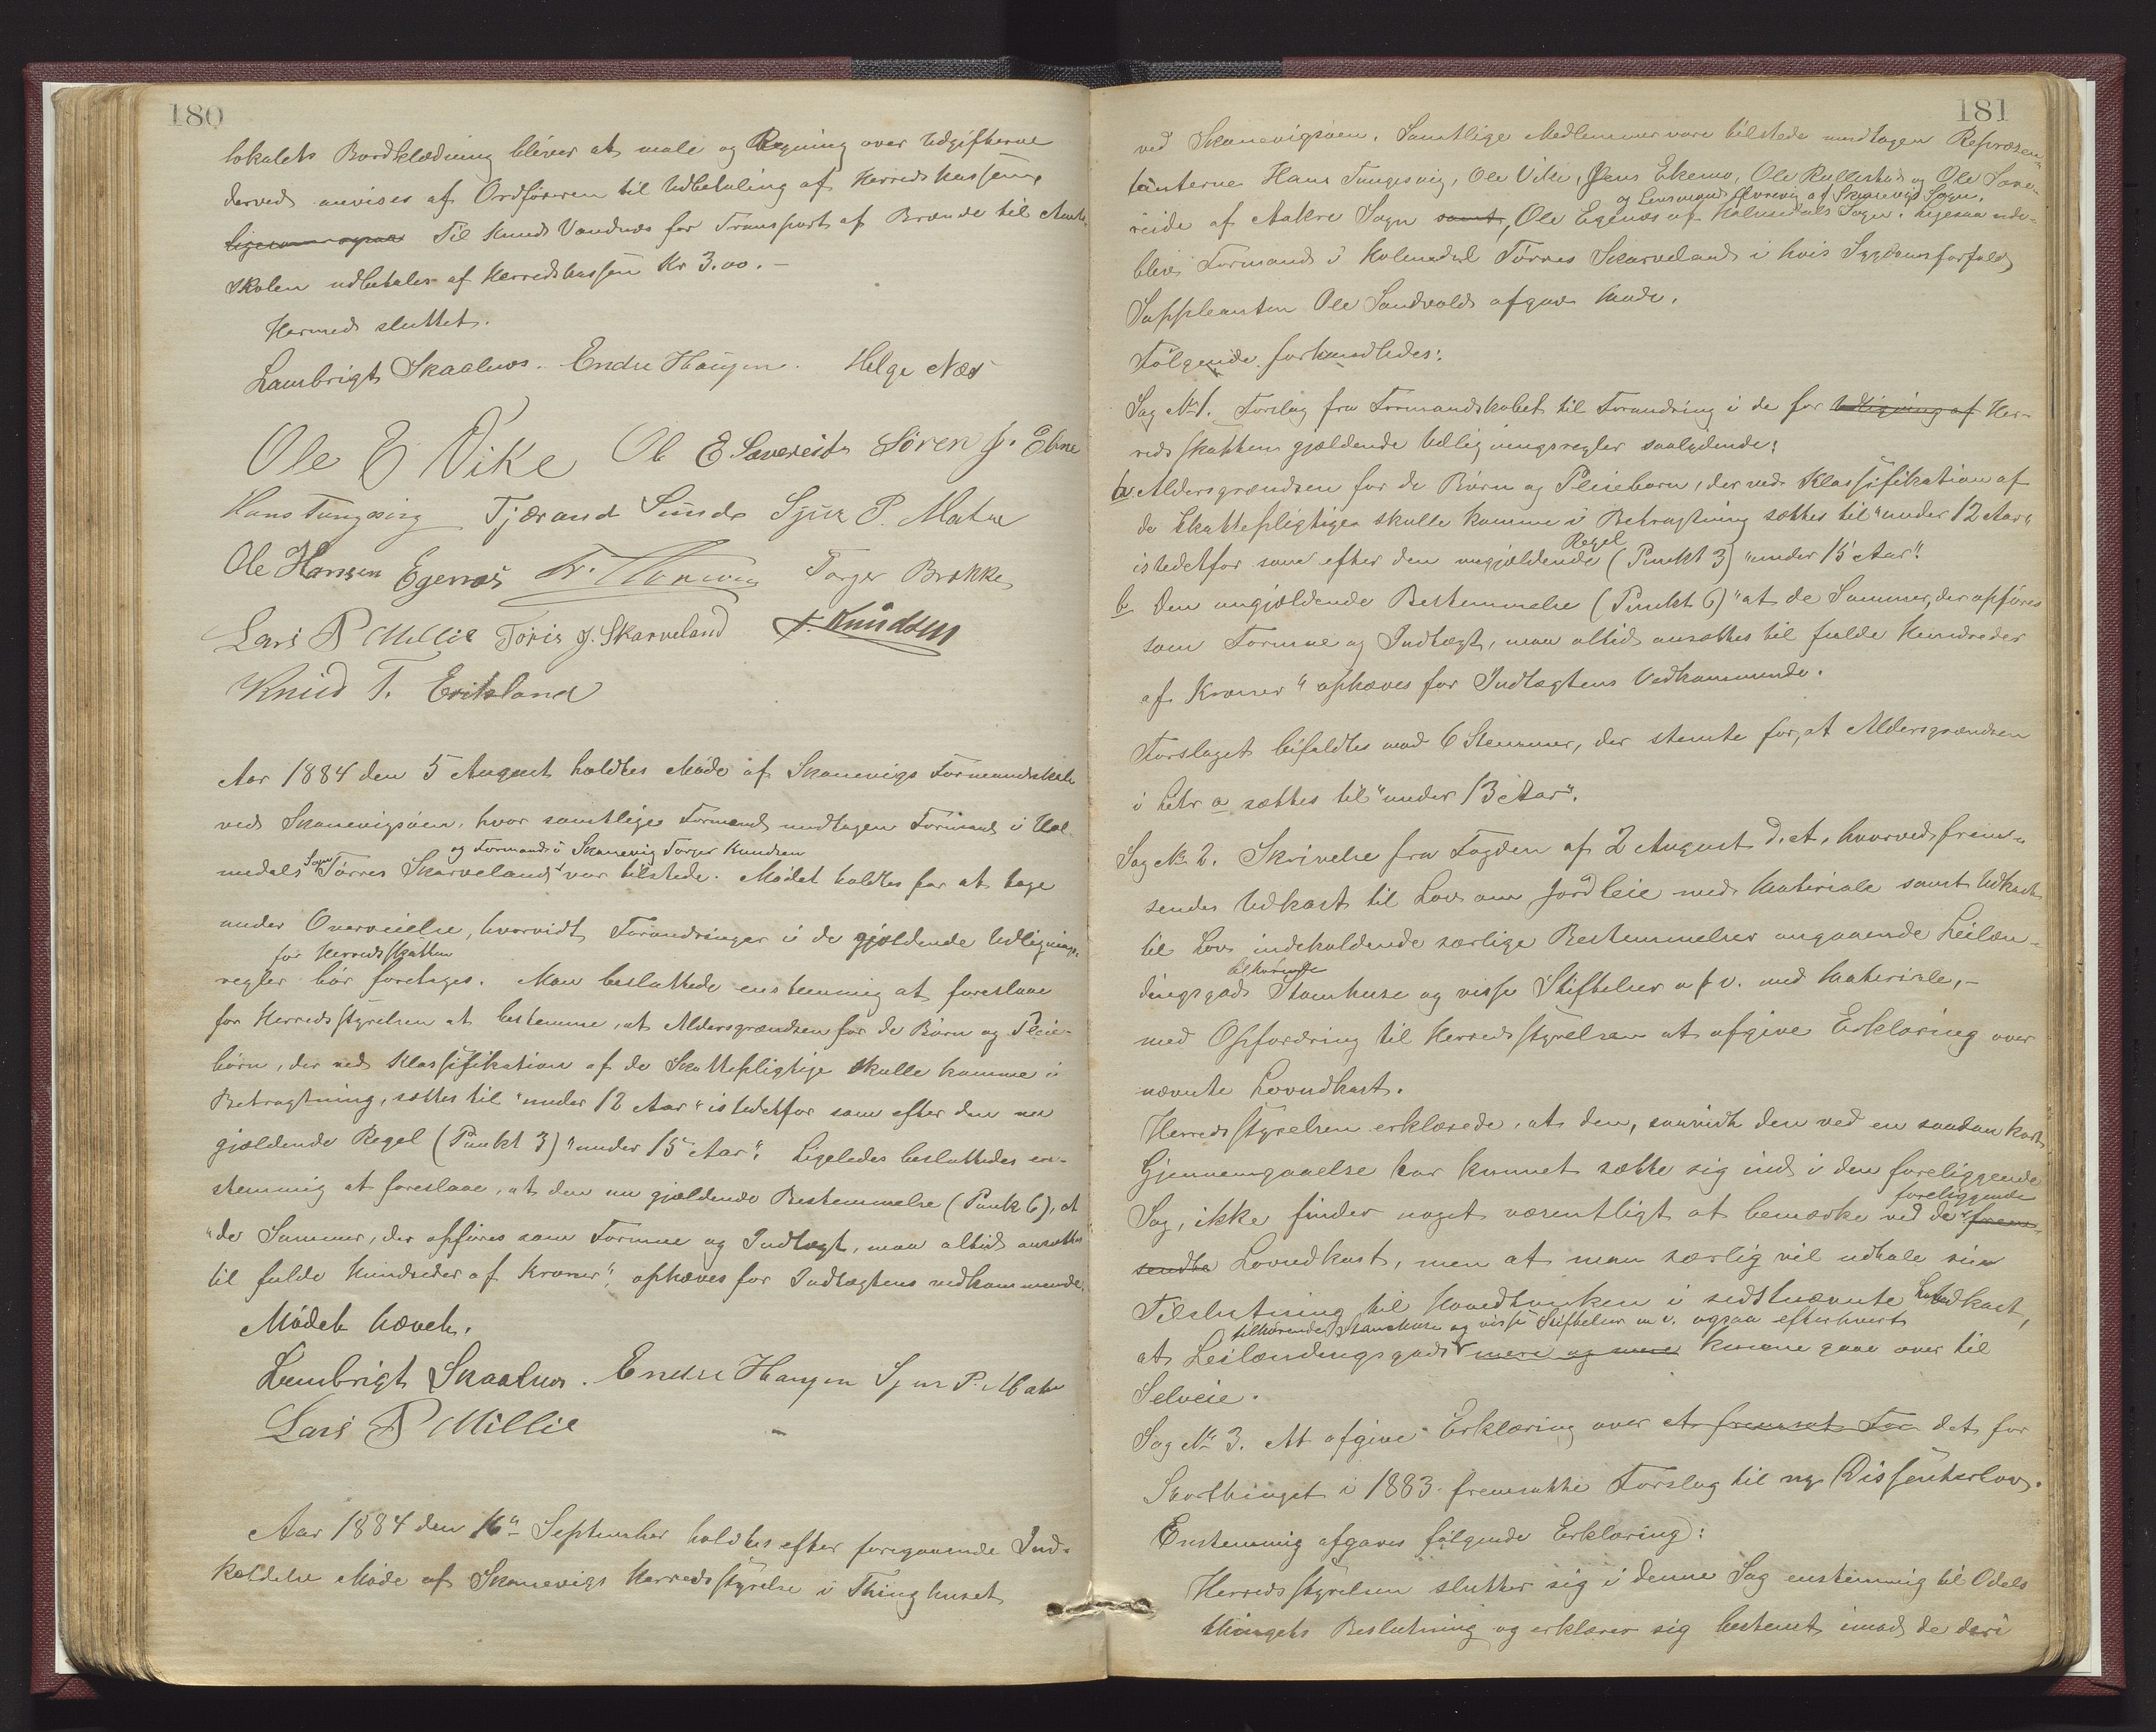 180
lokalets Bordklædning bliver at male og Regning over Udgifterne
derved anvises af Ordføreren til Udbetaling af Herredskassen,
ligesom ogsaa Til Knud Vandnæs for Transport af Brænde til Amts-
skolen udbetales af Herredskassen Kr 3.00.-
Hermed sluttet.
Lambrigt Skaalnæs. Endre Haugen. Helge Næs
Ole E Vike Ole E Sævereide Sören J. Ebne
Hans Tungesvig Tjærand Sunde Sjur P. Matre
Ole Hansen Egenæs Torger Brekke
Lars P Millie Töris J. Skarveland T. Knudsen
Knud T. Eritsland
Aar 1884 den 5 August holdtes Møde af Skonevigs Formandskab
ved Skonevigsøen, hvor samtlige Formænd undtagen Formand i Hol-
og Formand i Skonevig Torger Knudsen
medals Sogn Tørres Skarveland var tilstede. Mødet holdtes for at tage
under Overveielse, hvorvidt Forandringer i de gjældende Udlignings-
for Herredsskatten
regler bør foretages. Man besluttede enstemmig at foreslaae
for Herredsstyrelsen at bestemme, at Aldersgrændsen for de Børn og Pleie-
børn, der ved Klassifikation af de Skattepligtige skulle komme i
Betragtning, sættes til "under 12 Aar" istedetfor som efter den nu
gjældende Regel (Punkt 3) "under 15 Aar". Ligeledes besluttedes en-
stemmig at foreslaae, at den nu gjældende Bestemmelse (Punk 6), at
"de Summer, der opføres som Formue og Indtægt, maa altid ansættes
til fulde Hundreder af Kroner", ophæves for Indtægtens vedkommende.
Mødet hævet.
Lambrigt Skaalnæs. Endre Haugen Sjur P. Matre
Lars P Millie
Aar 1884 den 16de September holdtes efter foregaaende Ind-
kaldelse Møde af Skonevigs Herredsstyrelse i Thinghuset
181
ved Skonevigsøen. Samtlige Medlemmer vare tilstede undtagen Repræsen-
tanterne Hans Tungesvig, Ole Vike, Jens Ekemo, Ole Rullestad og Ole Sæve-
og Lensmand Øvrevig af Skonevigs Sogn.
reide af Aakre Sogn samt, Ole Egenæs af Holmedals Sogn. Ligesaa ude-
blev Formand i Holmedal Tørres Skarveland i hvis Sygdomsforfald
Suppleanten Ole Sandvold afgav Møde.
Følgende forhandledes:
Sag No 1. Forslag fra Formandskabet til Forandring i de for Udligning af Her-
redsskatten gjældende Udligningsregler saalydende:
a. Aldersgrændsen for de Børn og Pleiebørn, der ved Klassifikation af
de Skattepligtige skulle komme i Betragtning sættes til "under 12 Aar"
Regel
istedetfor som efter den nugjældende (Punkt 3) "under 15 Aar".
b Den nugjældende Bestemmelse (Punkt 6) "at de Summer, der opføres
som Formue og Indtægt, maa altid ansættes til fulde Hundreder
af Kroner" ophæves for Indtægtens Vedkommende.
Forslaget bifaldtes mod 6 Stemmer, der stemte for, at Aldersgrændsen
i Litr a sættes til "under 13 Aar".
Sag No 2. Skrivelse fra Fogden af 2 August d. A., hvorved frem-
sendes Udkast til Lov om Jordleie med Materiale samt Udkast
til Lov indeholdende særlige Bestemmelser angaaende Leilæn-
tilhørende
dingsgods Stamhuse og visse Stiftelser o s v. med Materiale,-
med Opfordring til Herredsstyrelsen at afgive Erklæring over
nævnte Lovudkast.
Herredsstyrelsen erklærede, at den, saavidt den ved en saadan kort
Gjennemgaaelse har kunnet sætte sig ind i den foreliggende
foreliggende
Sag, ikke finder noget væsentligt at bemærke ved de frem-
sendte Lovudkast, men at man særlig vil udtale sin
Tilslutning til Hovedtanken i sidstnævnte Lovudkast,
tilhørende Stamhuse og visse Stiftelser m v. ogsaa efterhvert
at Leilændingsgods mere og mere kunne gaae over til
Selveie.
Sag No 3. At afgive Erklæring over et fremsat For det for
Storthinget i 1883 fremsatte Forslag til ny Dissenterlov.
Enstemmig afgaves følgende Erklæring:
Herredsstyrelsen slutter sig i denne Sag enstemmig til Odels
thingets Beslutning og erklærer sig bestemt imod de deri